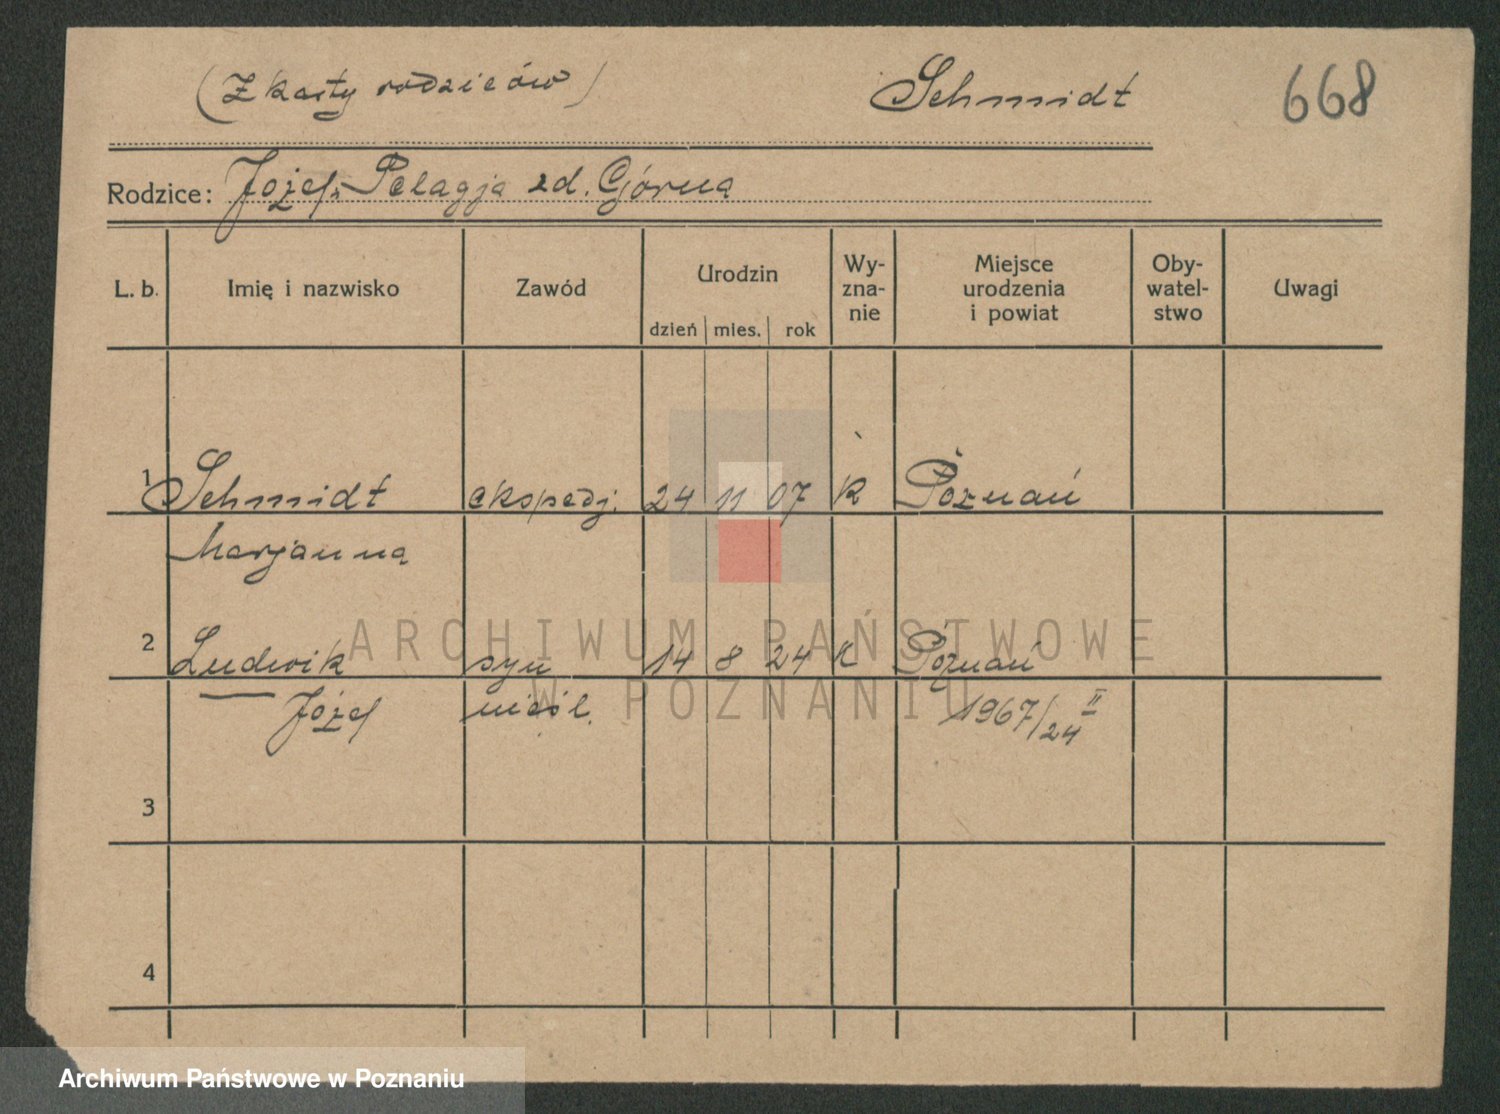 (Z karty rodziców) Schmidt 668
Rodzice: Józef, Pelagja zd. Górna
L. b. Imię i nazwisko Zawód Urodzin Wy-zna-nie Miejsce urodzenia i powiat Oby-watel-stwo Uwagi
dzień mies. rok
1 Schmidt ekspedj. 24 11 07 K Poznań
Marjanna
2 Ludwik syn 14 8 24 K Poznań
Józef nieśl. 1967/24 II
3
4
ARCHIWUM PAŃSTWOWE
W POZNANIU
Archiwum Państwowe w Poznaniu